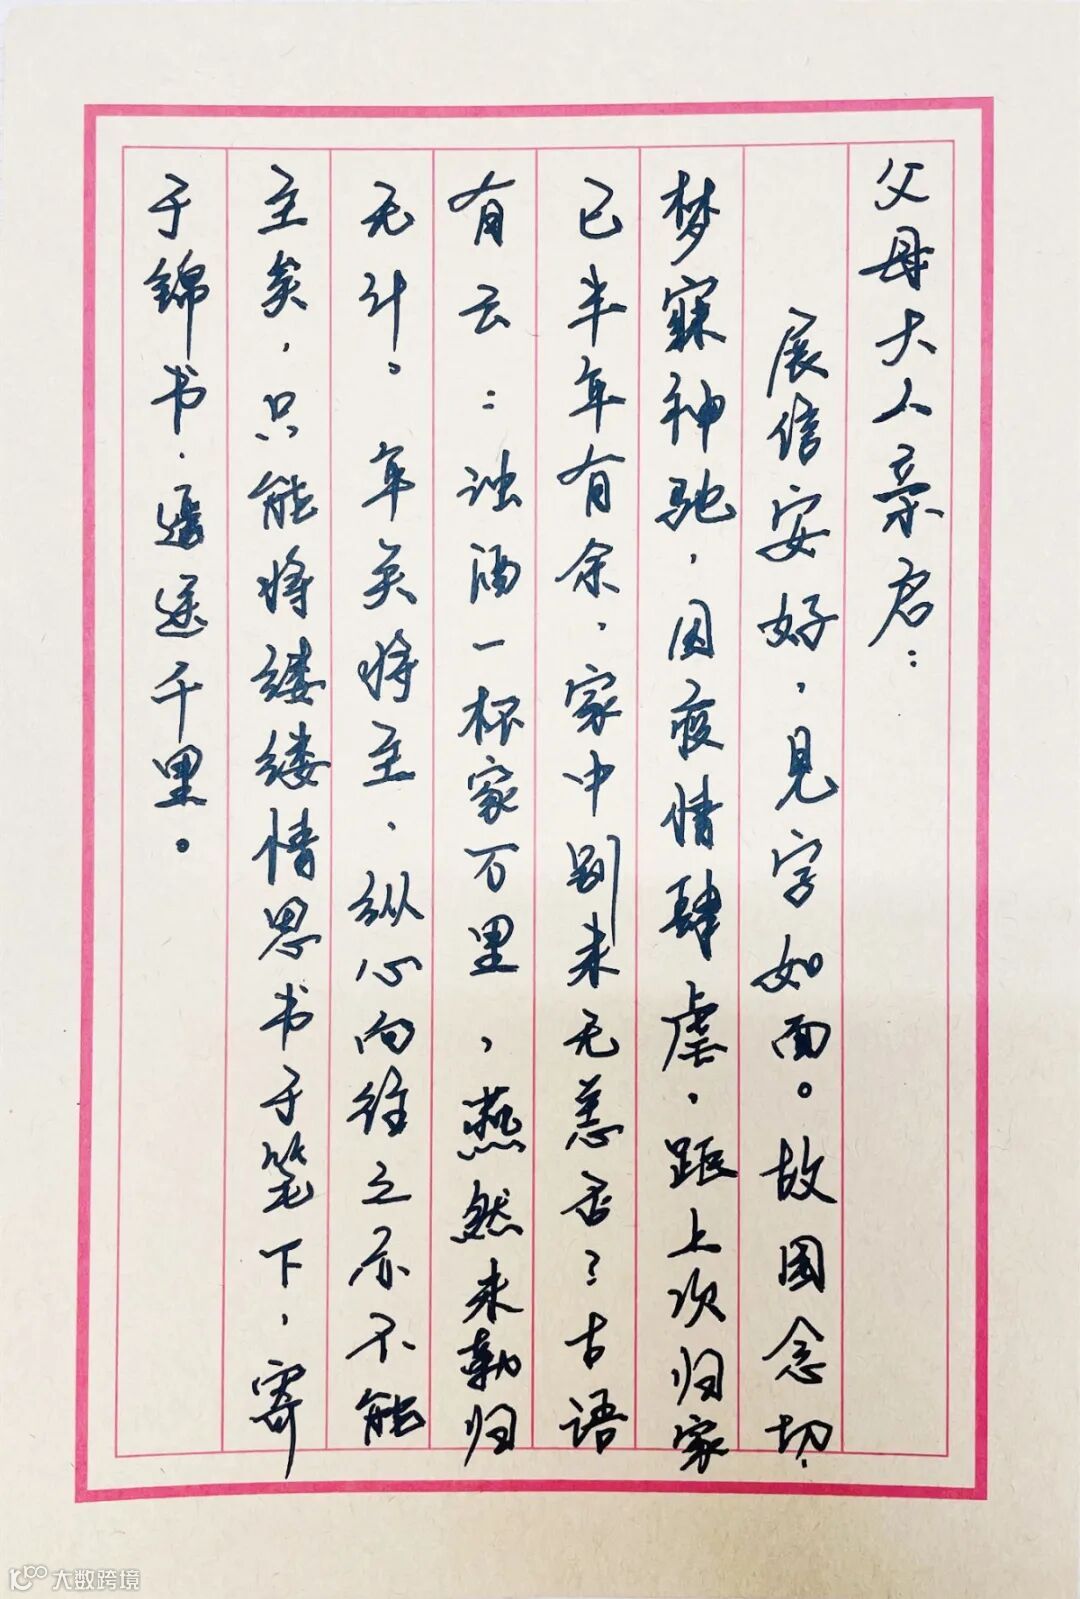 父母大人亲启：
展信安好，见字如面。故园念切，
梦寐神驰，因疫情肆虐，距上次归家
已半年有余，家中别来无恙否？古语
有云：浊酒一杯家万里，燕然未勒归
无计。年关将至，纵心向往之亦不能
至矣，只能将缕缕情思书于笔下，寄
于锦书，遥送千里。
大数跨境